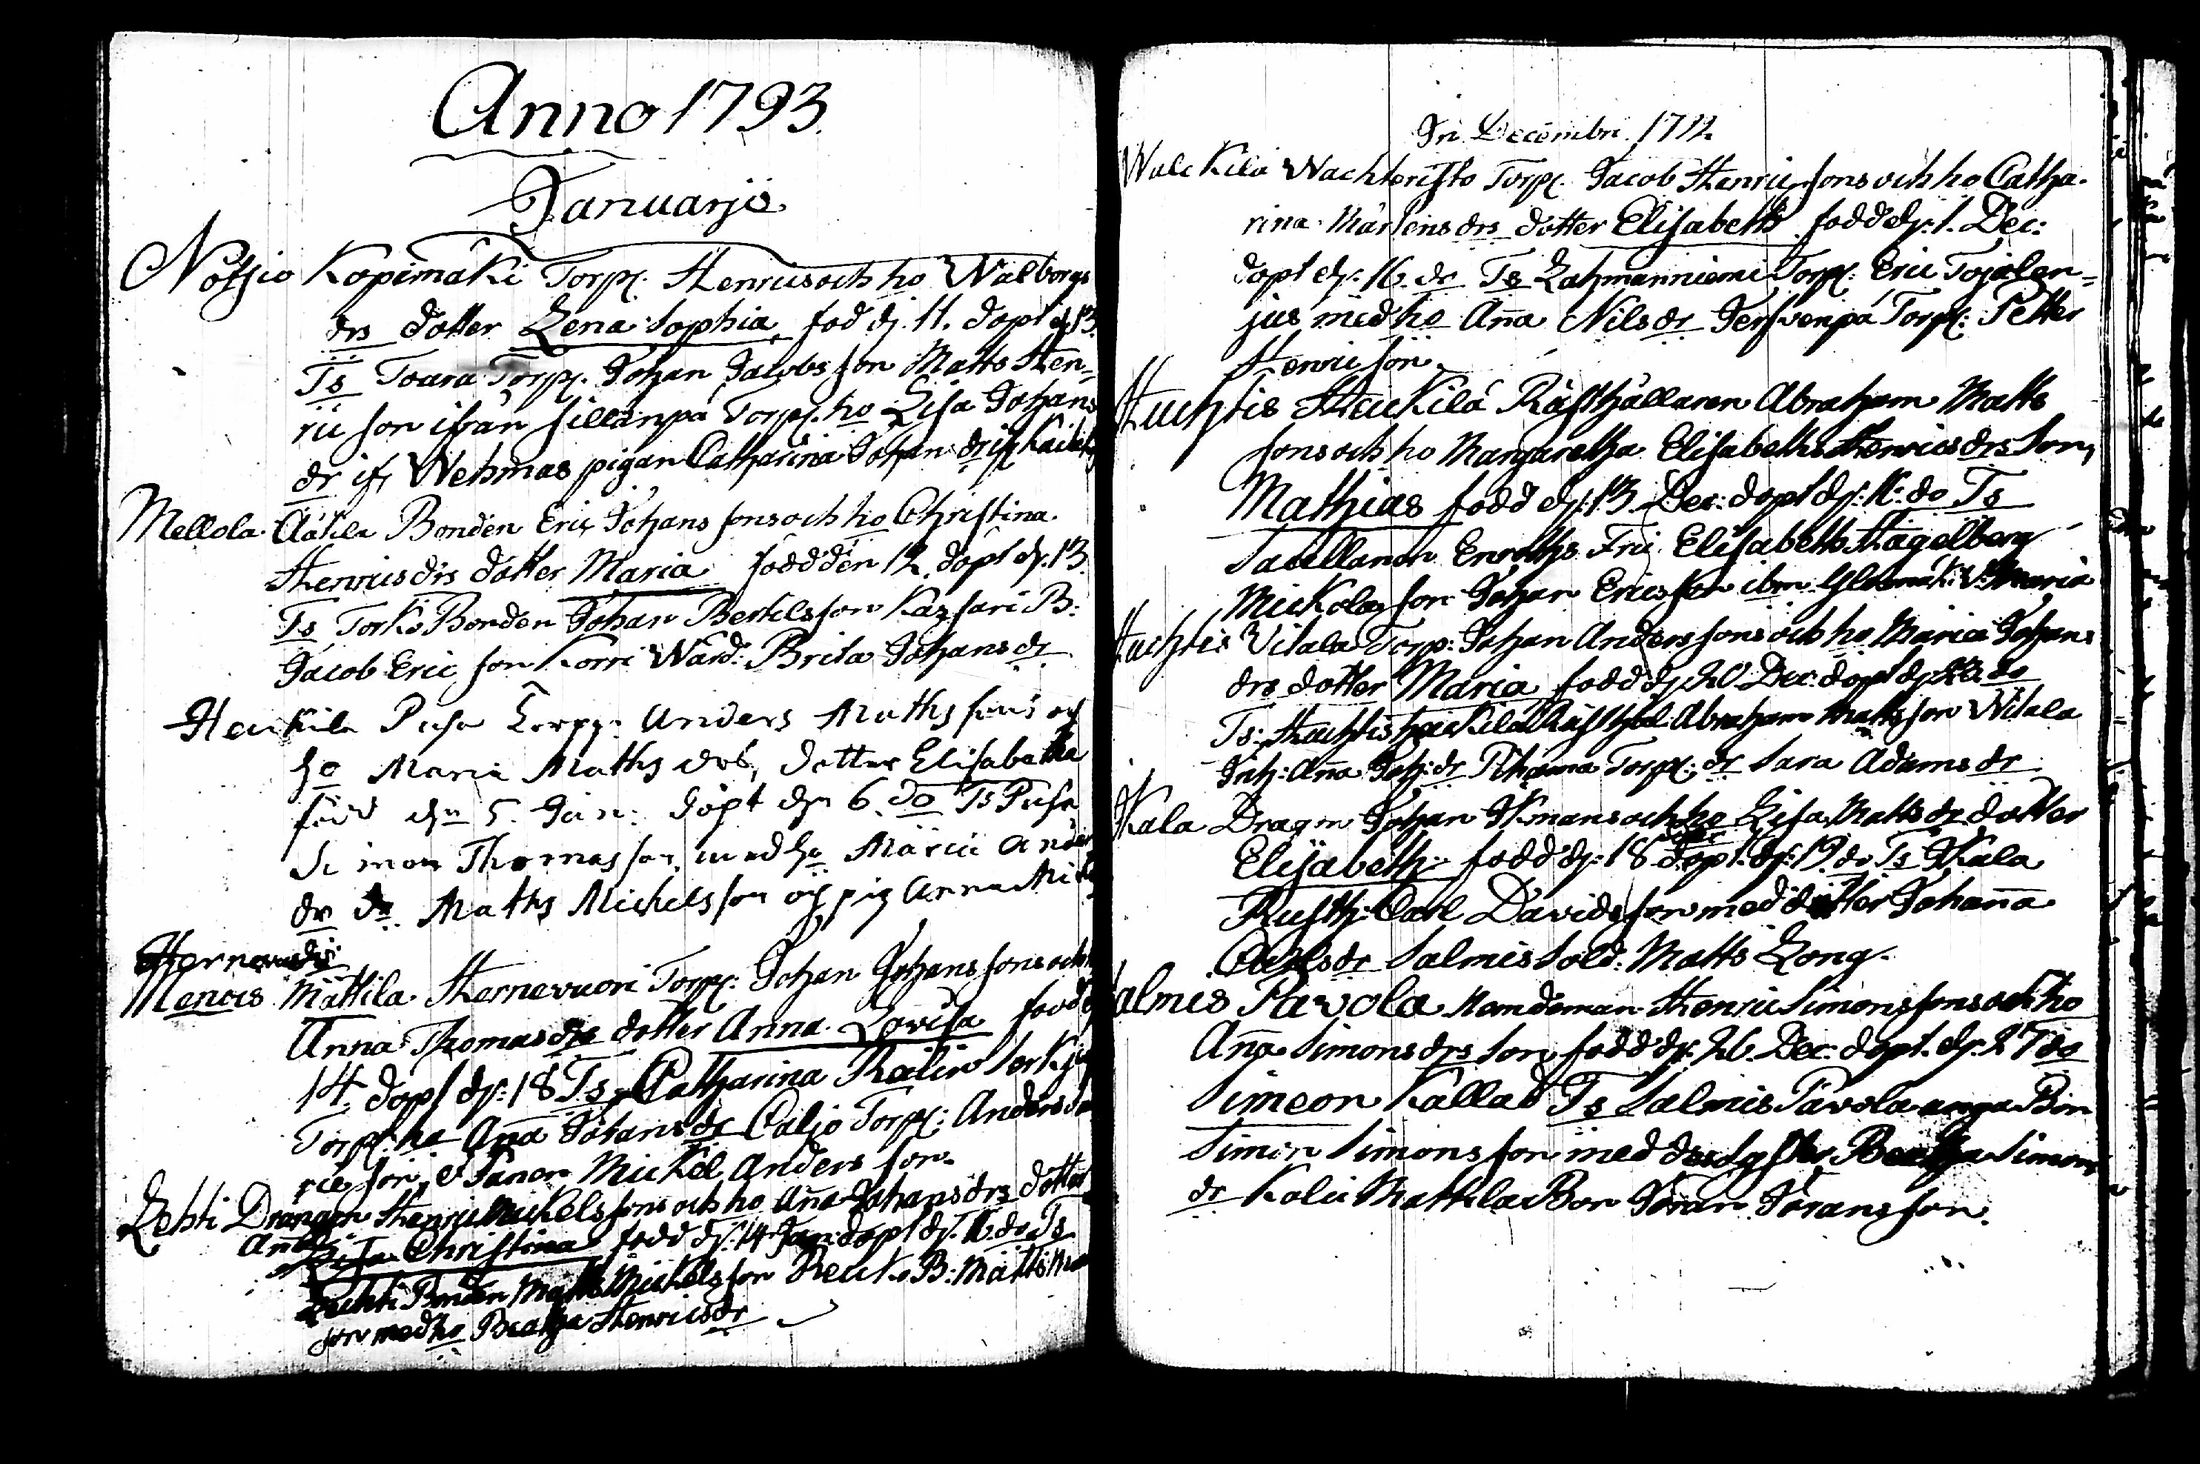 Anno 1793.
Januarii
Notsjo Kopimäki Torp: Henrics och ho Walborgs
drs dotter Lena Sophia, fod dj. 11. dopt dj 13.
Ts Toara Torp: Johan Jacobs son Matts Hen-
ric son ifrån Sillanpä Torp: ho Lisa Johans
dr ifr Wehmas pigan Catharina Johans dr ifr
Mellola Bonden Eric Johans sons och ho Christina
Henrics drs dotter Maria född den 12. dopt dj. 13.
Ts Torko Bonden Johan Bertils son B:
Jacob Eric son Korri Wärd: Brita Johans dr
Heikila Torp: Anders Maths sons och
ho Maria Maths drs, dotter Elisabetha
född den 5. Jan: döpt den 6. do Ts
Simon Thomas son, med ho Maria Anders
dr do Maths Michels son och pig Anna
Hernevuori
Menois Mattila Hernevuori Torp: Johan Johans sons och
Anna Thomas drs dotter Anna Lovisa född
14. dopt dj: 18 Ts Catharina
Torp: ho Ana Johans dr Torp: Anders
ric son, Mickel Anders son.
Lehti Drangen Henric Mickels sons och ho Ana Johans drs dotter
Christina född dj: 14 Jan: dopt dj. 16. do Ts
Lechti Bonden Matts Mickels son B: Matts
son med ho Beatha Henrics dr
In Decembri. 1792.
Walckila Wachteristo Torp: Jacob Henric sons och ho Catha-
rina Mårtens drs dotter Elisabeth född dj: 1. Dec:
dopt dj: 16. do Ts Lahmanniemi Torp: Eric Tojalen-
jus med ho Ana Nils dr Jersvenpä Torp: Petter
Henric son.
Huchtis Heickilä Rusthållaren Abraham Matts
sons och ho Margaretha Elisabeths Henrics drs Son,
Mathias född dj: 13 Dec: dopt dj: 16. do Ts
Sacellanen Enroths Fru Elisabeth Hagelberg
Mickola son Johan Erics son ibm Maria
Huchtis Vitala Torp: Johan Anders sons och ho Maria Johans
drs dotter Maria född dj 20 Dec: dopt dj 23. do
Ts: Huchtis Heickilä Rusthol Abraham Matts son Vitala
Inh: Ana Joh: dr Torp: dr Sara Adams dr
Kala Dragon Johan och ho Lisa Matts dr dotter
Elisabeth född dj: 18 dopt: dj: 19 do Ts Kala
Rusth: Carl Davids son med dotter Johana
Carls dr Salmis Sold: Matts Long.
Salmis Pavola Nemdeman Henric Simons sons och ho
Ana Simons drs Son född dj: 26 Dec: dopt. dj: 27 do
Simeon Kallad Ts Salmis Pavola unga Bon
Simon Simons son med dess Syster Beatha Simons
dr Mattila Bon Göran Görans son.